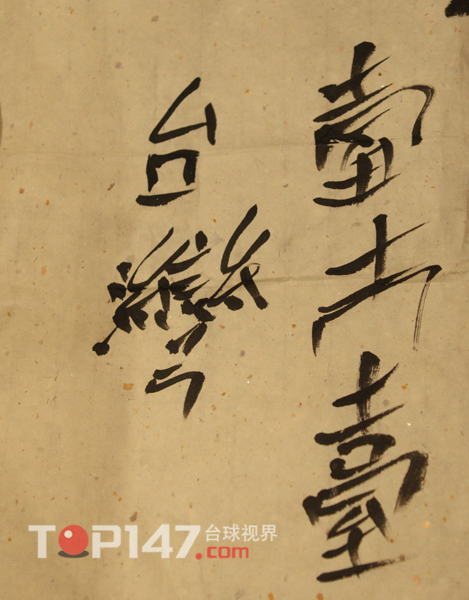 臺
臺
台灣
TOP147.com
台球视界